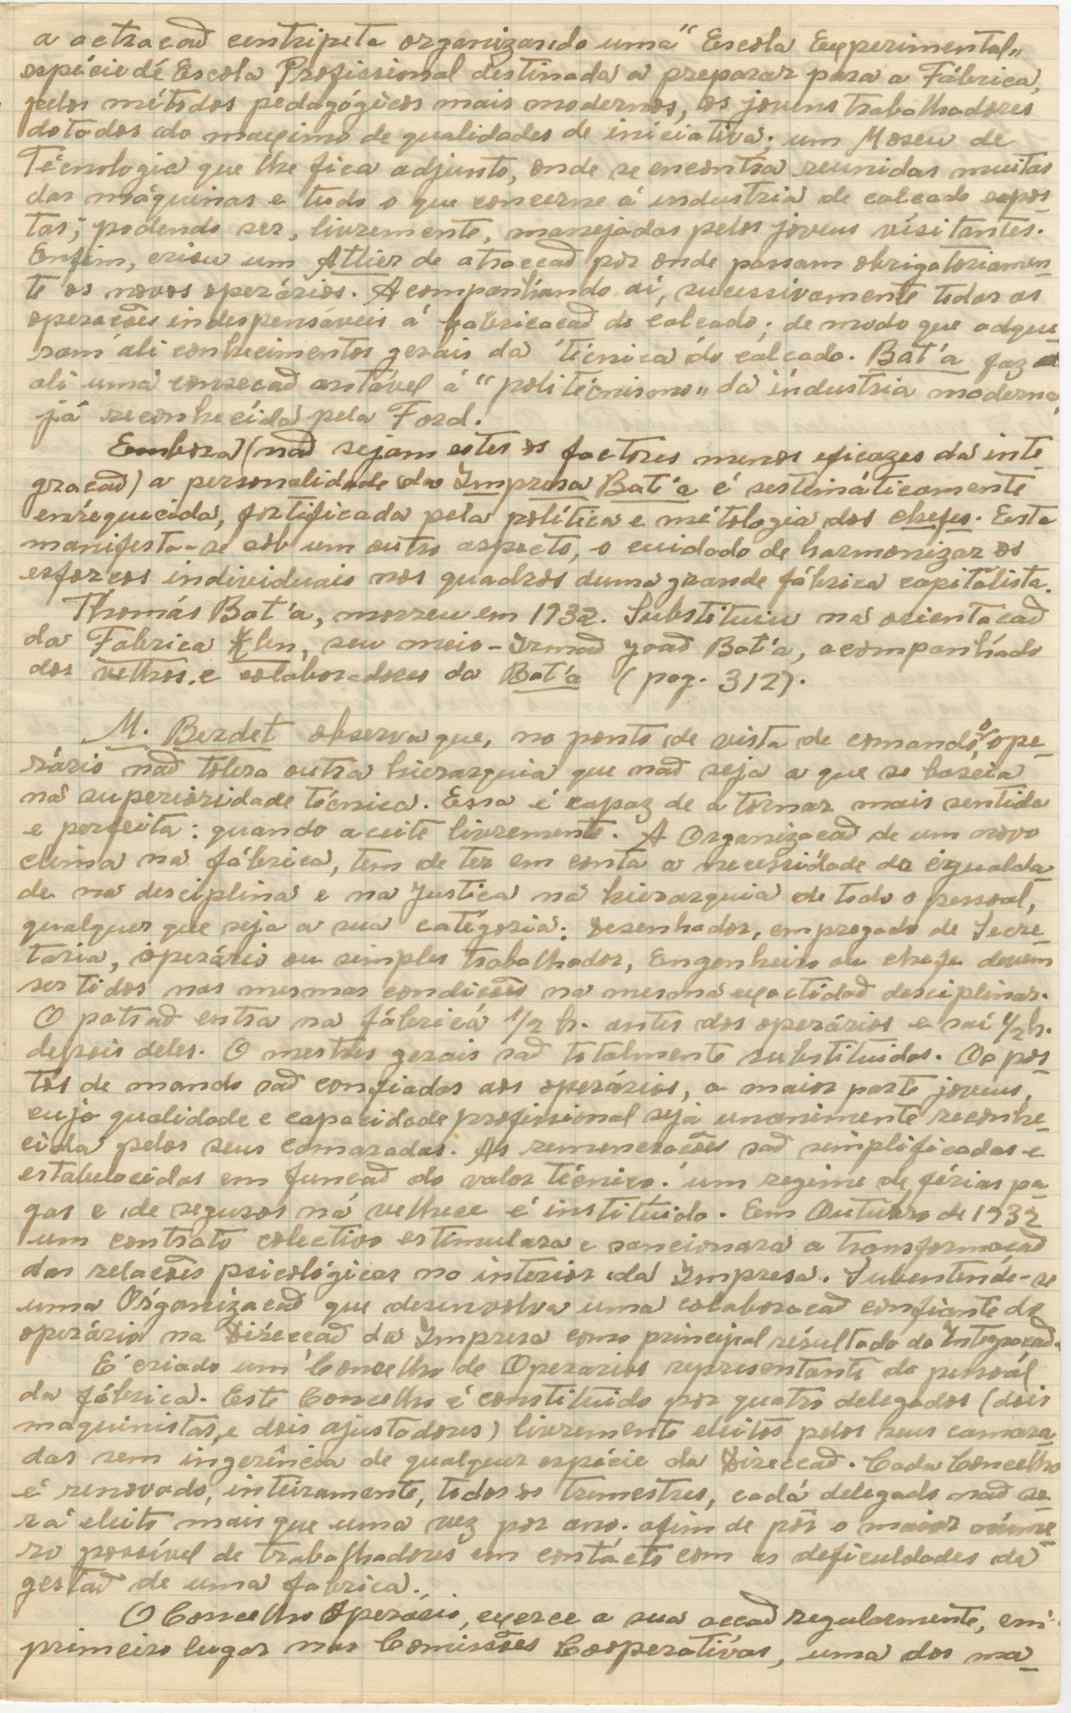 a actracão centripeta organizando uma "Escola Experimental"
espécie dé Escola Proficional destinada a preparar para a Fábrica,
pelos métodos pedagógicos mais modernos, os jovens trabalhadores
dotados do maximo de qualidades de iniciativa; um Moseu de
Técnologia que lhe fica adjunto, onde se encontra reunidas muitas
das máquinas e tudo o que concerne á industria de calcado expos-
tas; podendo ser, livremente, manejadas pelos jovens visitantes.
Enfim, criou um Attier de atraccaõ por onde passam obrigatoriamen-
te os novos operários. Acompanhando ai, sucessivamente todas as
operacões indespensáveis á fabricacaõ do calcado; de modo que adqui-
ram ali conhecimentos gerais da técnica do calcado. Bat'a faz
ali uma consecaõ notável á "politécnismo" da industria moderna,
já reconhecida pela Ford.
Embora (naõ sejam estes os factores menos eficazes da inte
gracaõ) a personalidade da Impresa Bat'a é sestemáticamente
enrequecida, fortificada pela politica e métologia dos chefes. Esta
manifesta-se sob um outro aspecto, o cuidado de harmonizar os
esforcos individuais nos quadros duma grande fábrica capitálista.
Thomás Bat'a, morreu em 1932. Substituiu na orientacaõ
da Fabrica Zlin, seu meio-Irmaõ Joaõ Bat'a, acompanhádo
dos velhos e colaboradores da Bat'a (pag. 312).
M. Berdet observa que, no ponto de vista de comando, o ope-
rário naõ tolera outra hierarquia que naõ seja a que se baseia
na superioridade técnica. Essa é capaz de a tornar mais sentida
e perfeita: quando aceite livremente. A Organizacaõ de um novo
clima na fábrica, tem de ter em conta a necessidade da egualda-
de na desciplina e na Justica na hierarquia de todo o pessoal,
qualquer que seja a sua catégoria: Desenhador, empregado de Secre-
taria, operário ou simples trabalhador, Engenheiro ou chefe devem
ser tidos nas mesmas condicões na mesma exactidaõ desciplinar.
O patraõ entra na fábrica 1/2 h. antes dos operários e sai 1/2 h.
depois deles. O mestres gerais saõ totalmente substituidos. Os pos-
tos de mando saõ confiados aos operários, a maior parte jovens,
cuja qualidade e capacidade profissional seja unanimente reconhe-
cida pelos seus camaradas. As remuneracões saõ simplificadas e
estabelecidas em funcaõ do valor técnico: um regime de férias pa-
gas e de seguros na velhece é instituido. Em Outubro de 1932
um contrato colectivo estimulara e sancionará a transformacaõ
das relacões psicológicas no interior da Impresa. Subentende-se
uma Organizacaõ que desenvolva uma colaboracaõ confiante do
operário na Direccaõ da Impresa como principal résultado da Integracaõ.
É criado um Concelho de Operarios representante do pessoal
da fábrica. Este Concelho é constituido por quatro delegados (dois
maquinistas, e dois ajustadores) livremente eleitos pelos seus camara-
das sem ingerência de qualquer espécie da Direccaõ. Cada Concelho
é renovado, inteiramente, todos os trimestres, cada delegado naõ se-
rá eleito mais que uma vez por ano. afim de pôr o maior núme-
ro possivel de trabalhadores em contácto com as deficuldades da
gestaõ de uma fabrica.
O Concelho Operário, exerce a sua accaõ regularmente, em
primeiro lugar nas Comissões Cooperativas, uma dos ma-